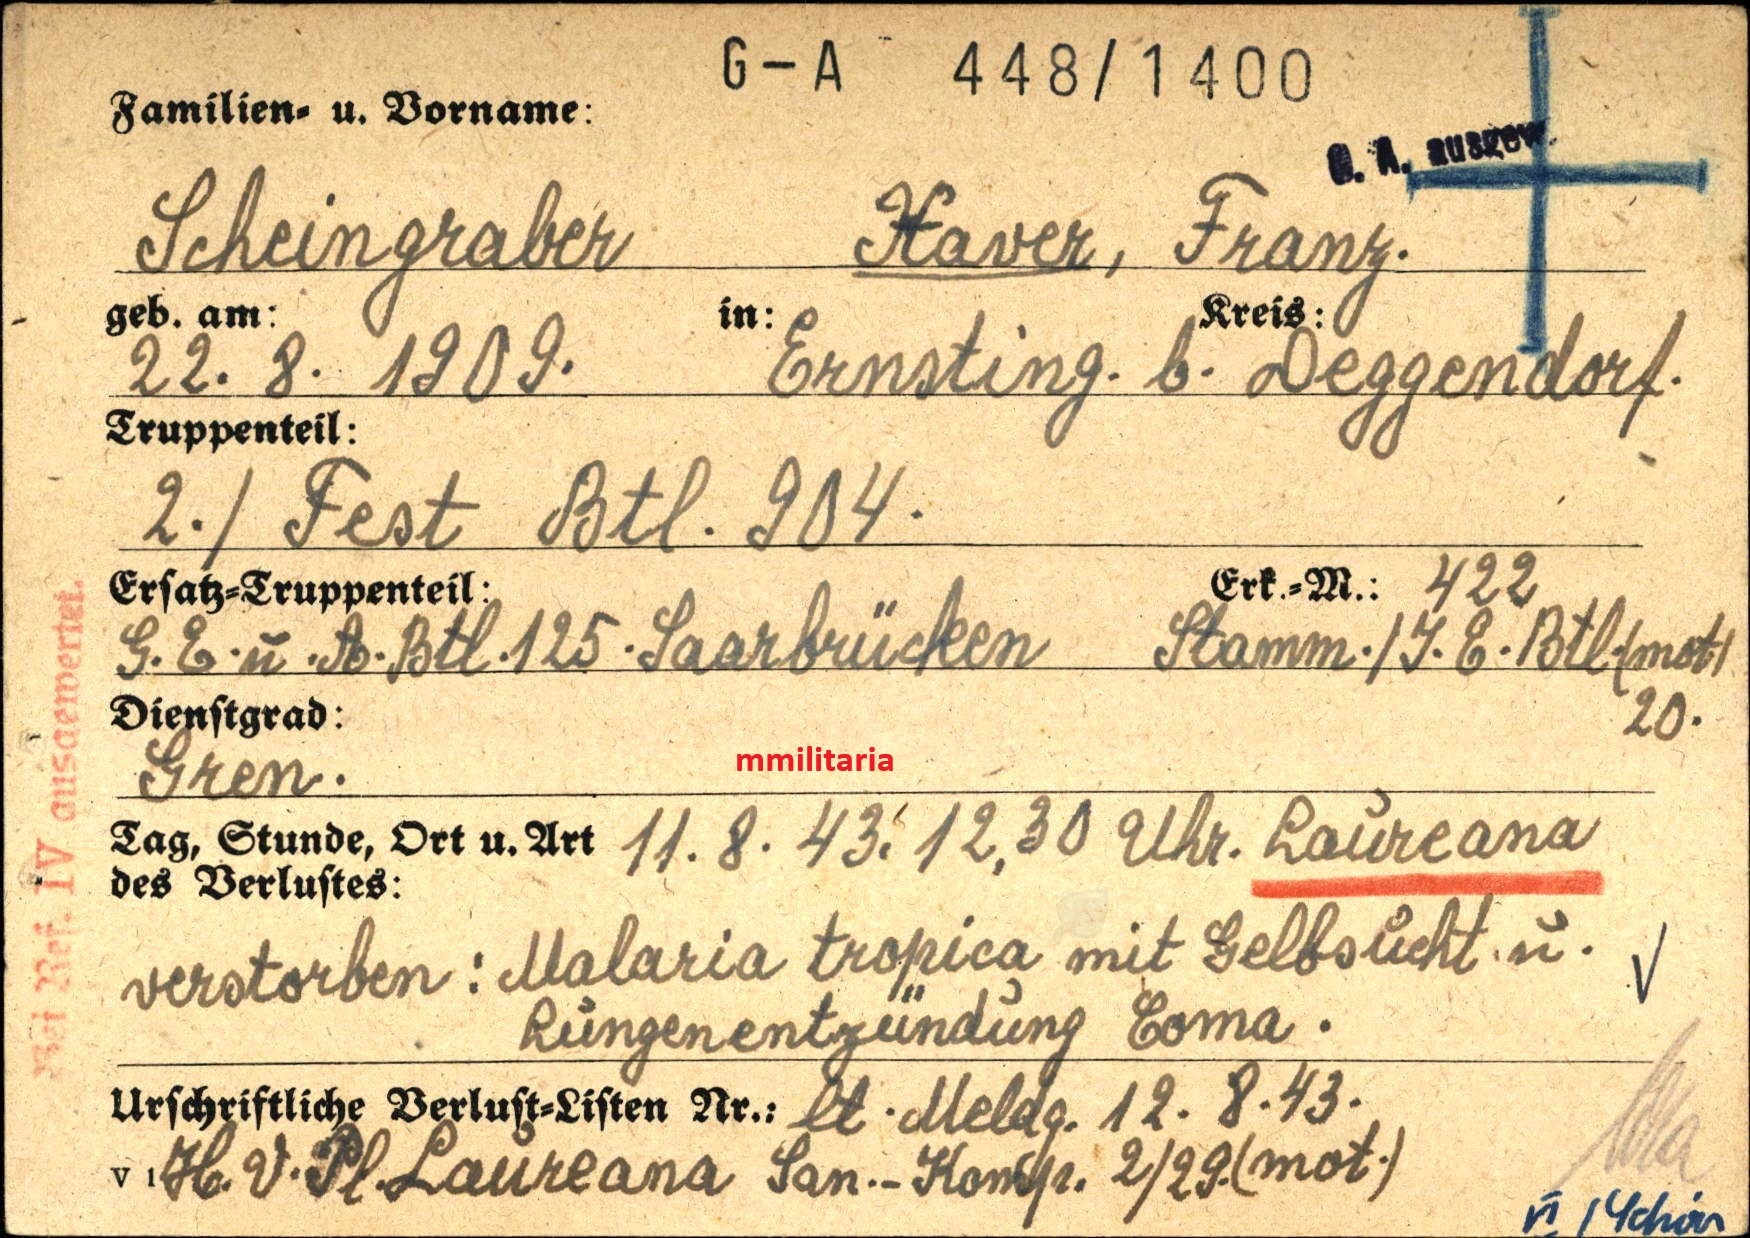 G-A 448/1400
Familien- u. Vorname:
G. A. ausgew.
Scheingraber Xaver, Franz.
geb. am: in: Kreis:
22. 8. 1909. Ernsting. b. Deggendorf.
Truppenteil:
2./ Fest Btl. 904.
Ersatz-Truppenteil: Erk.-M.: 422
G. E. u. A. Btl. 125. Saarbrücken Stamm./J. E. Btl. (mot)
20.
Dienstgrad:
Gren.
mmilitaria
Tag, Stunde, Ort u. Art 11. 8. 43. 12,30 Uhr. Laureana
des Verlustes:
verstorben: Malaria tropica mit Gelbsucht u.
Lungenentzündung Coma.
Urschriftliche Verlust-Listen Nr.: lt. Meldg. 12. 8. 43.
V 1 H. V. Pl. Laureana San.-Komp. 2/29. (mot.)
VI /
Bei Ref. IV ausgewertet.